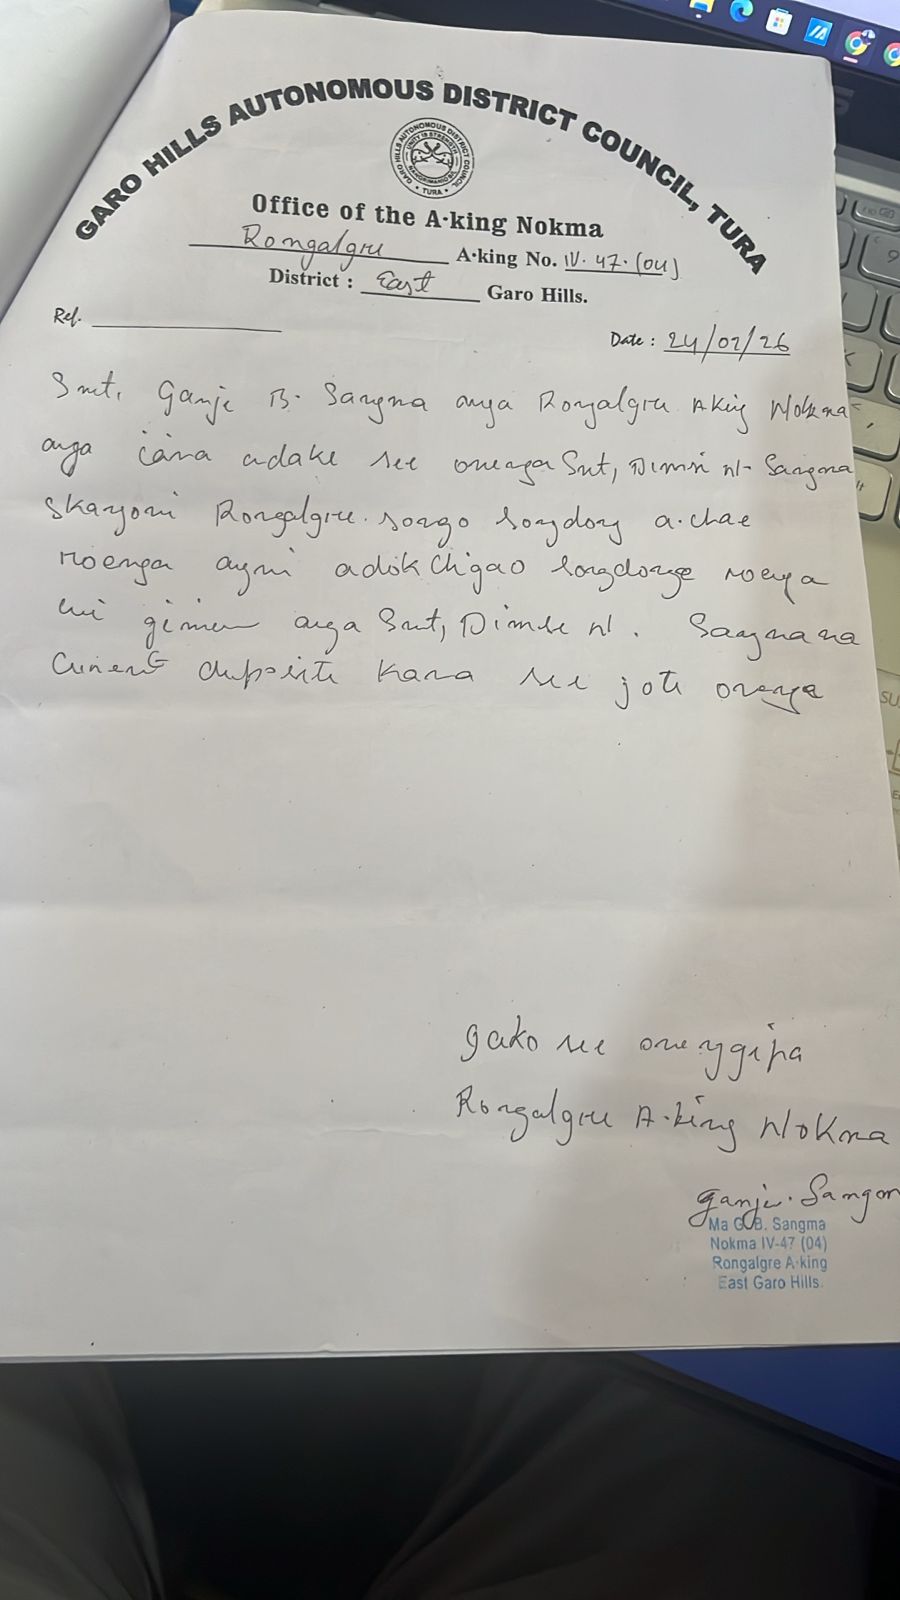 GARO HILLS AUTONOMOUS DISTRICT COUNCIL, TURA
GARO HILLS AUTONOMOUS DISTRICT COUNCIL
UNITY IS STRENGTH
TURA
Office of the A·king Nokma
Rongalgre A·king No. IV. 47. (04)
District : East Garo Hills.
Ref.
Date : 24/02/26
Smt. Ganje B. Sangma anga Rongalgre Aking Nokma
anga iana adake see onenga Smt, Sangma
Skangoni Rongalgre songo songdong a·chae
roenga angni adok Chigao songdonge roenga
uni gimen anga Smt, Dimse N. Sangmana
Current deposite kana see jote onenga
gako see onenggipa
Rongalgre A·king Nokma
Ganje. Sangm
Ma G.B. Sangma
Nokma IV-47 (04)
Rongalgre A·king
East Garo Hills.